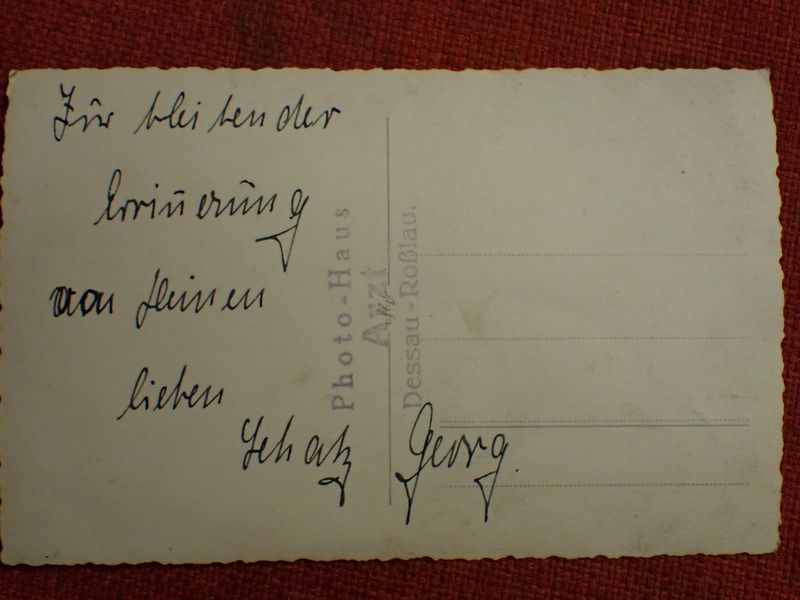 Zur bleibender
Errinerung
von Deinen
lieben
Schatz Georg.
Photo-Haus
Arzt
Dessau-Roßlau.